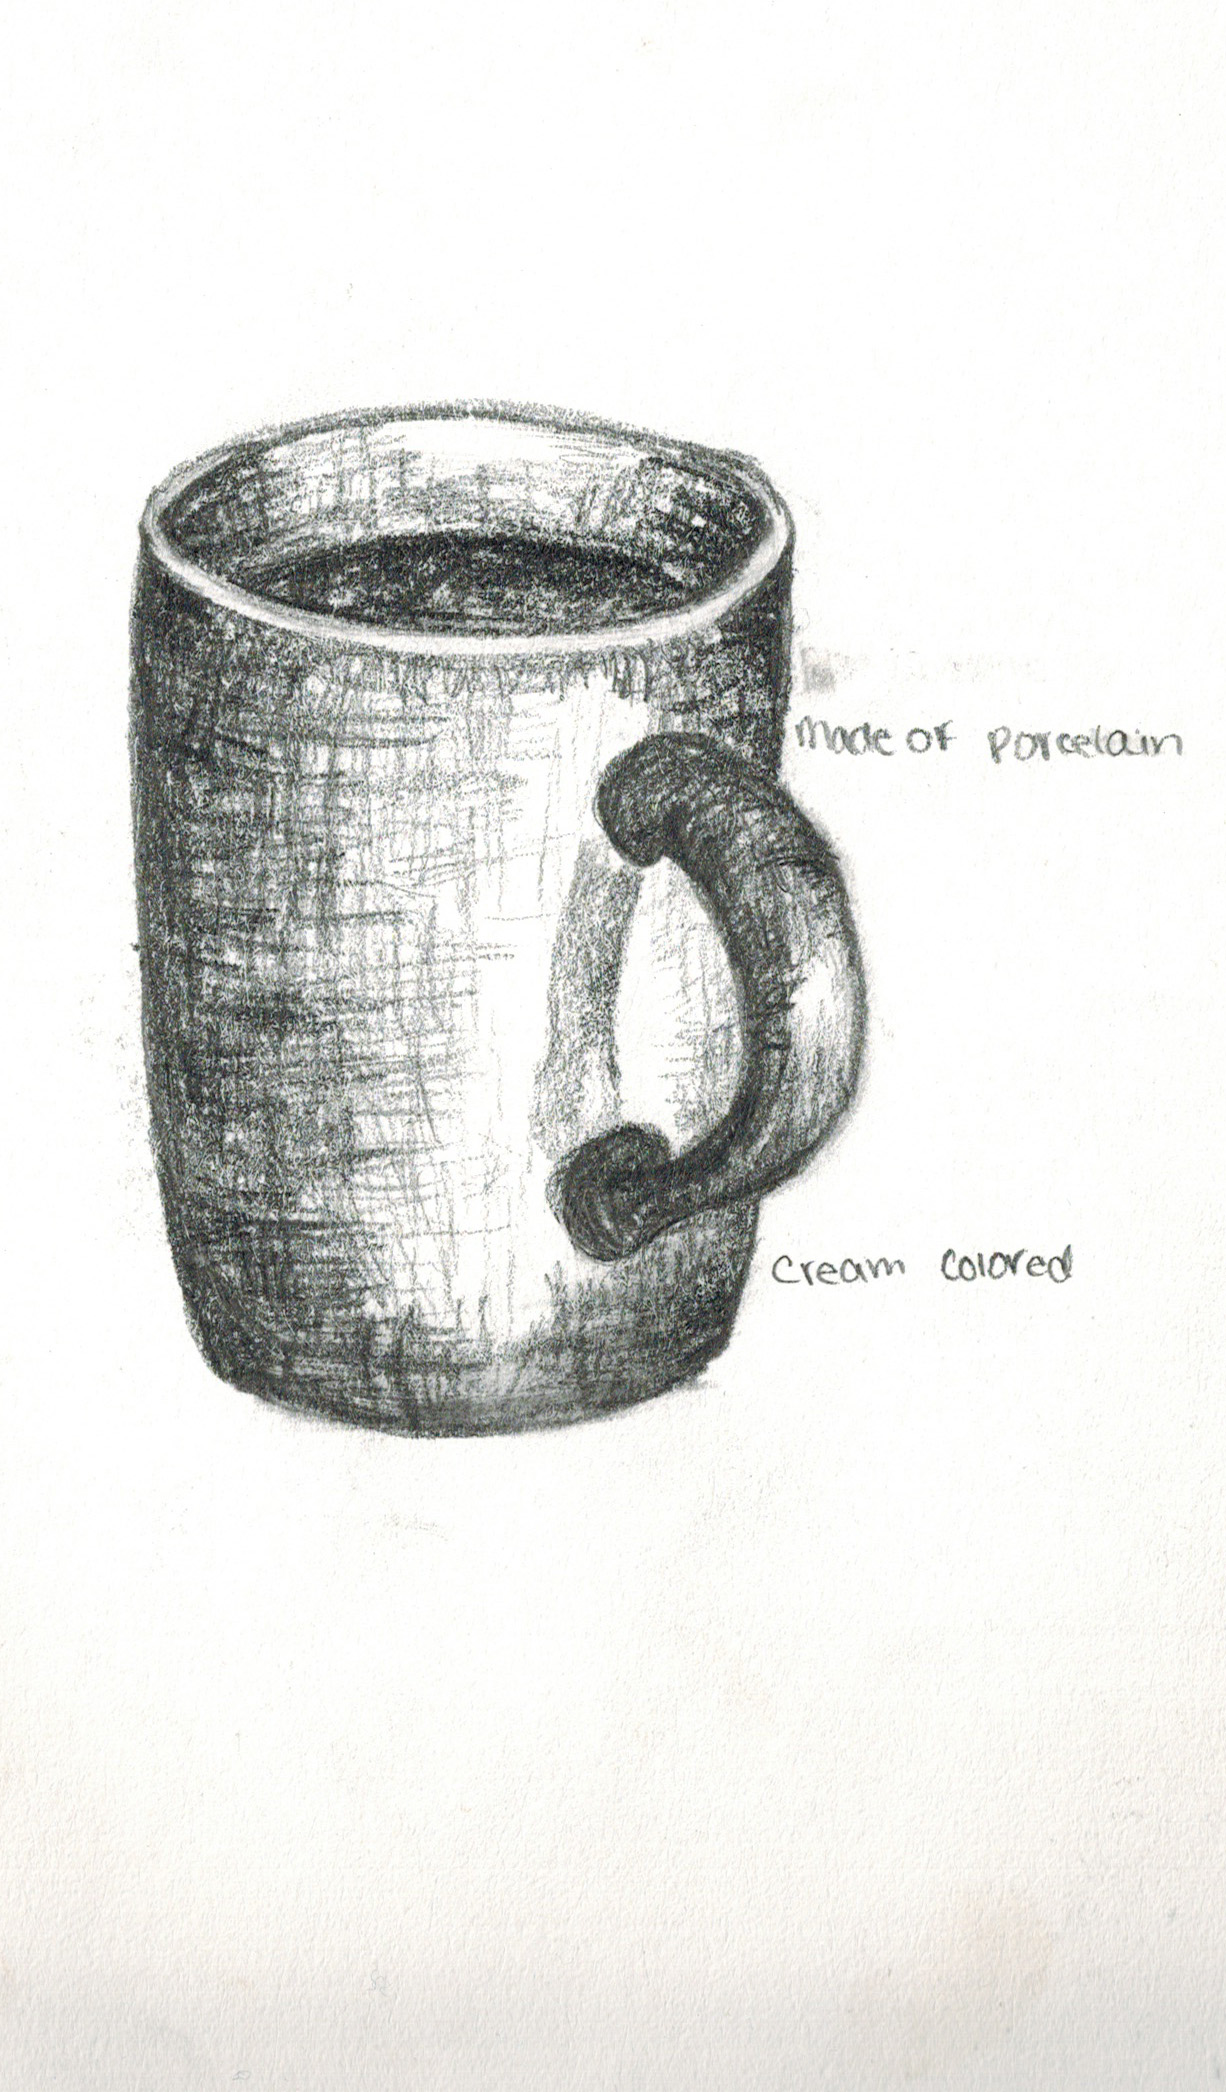 Made of porcelain
Cream colored